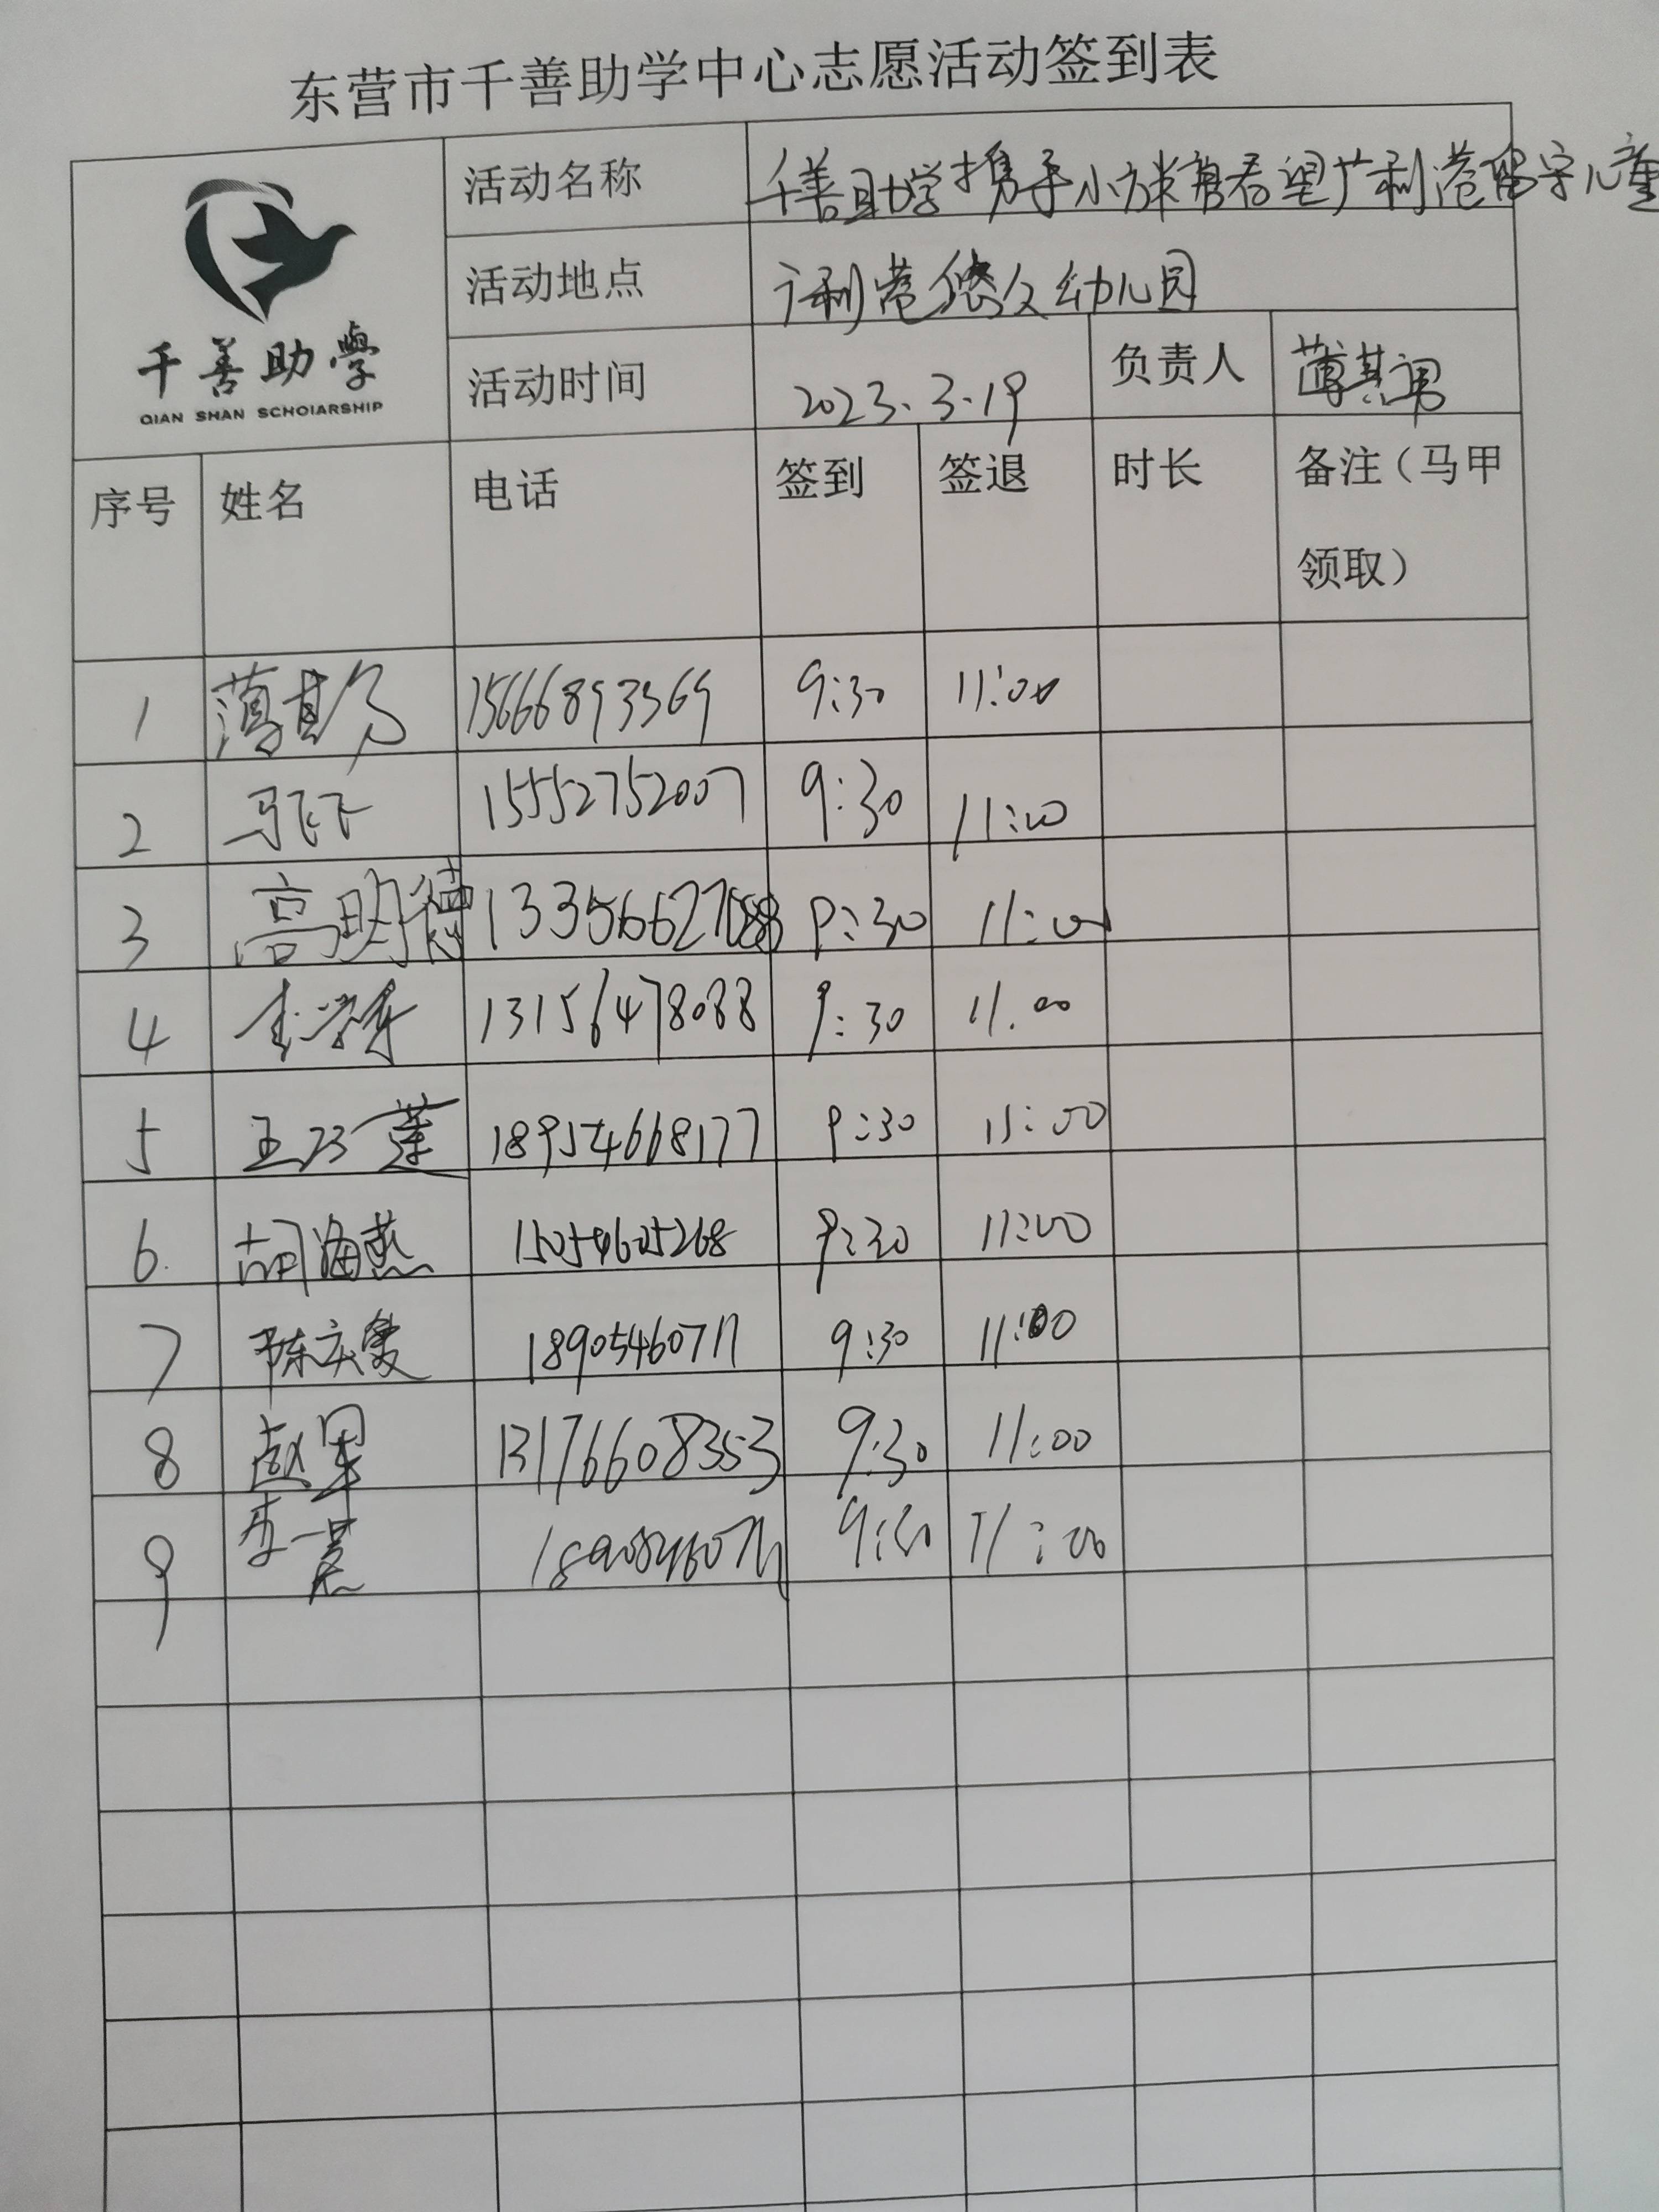 东营市千善助学中心志愿活动签到表
千善助學
QIAN SHAN SCHOIARSHIP
活动名称 千善助学携手小放牛剪看望广利港留守儿童
活动地点 广利港悠久幼儿园
活动时间 2023.3.19 负责人 薄其勇
序号 姓名 电话 签到 签退 时长 备注（马甲
领取）
1 薄其勇 15666893569 9:30 11:00
2 马飞飞 15552752007 9:30 11:00
3 高明德 9:30 11:00
4 13156478088 9:30 11.00
5 王巧莲 18954668177 9:30 11:00
6. 胡海燕 15054605268 9:30 11:00
7 陈庆 9:30 11:00
8 赵军 13176608353 9:30 11:00
9 李 9:30 11:00